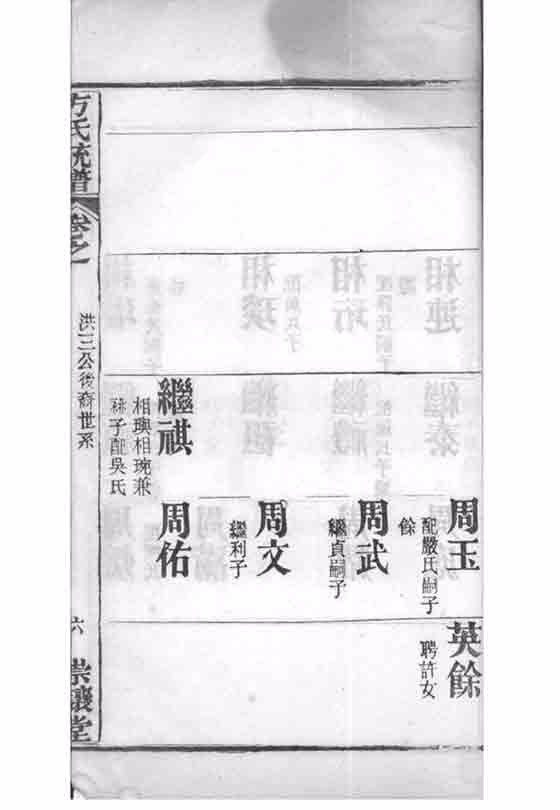 周玉
配嚴氏嗣子
餘
英餘
聘許女
周武
繼貞嗣子
周文
繼利子
繼祺
相璵相琬兼
祧子配吳氏
周佑
方氏統譜
卷之
洪三公後裔世系
六
崇讓堂